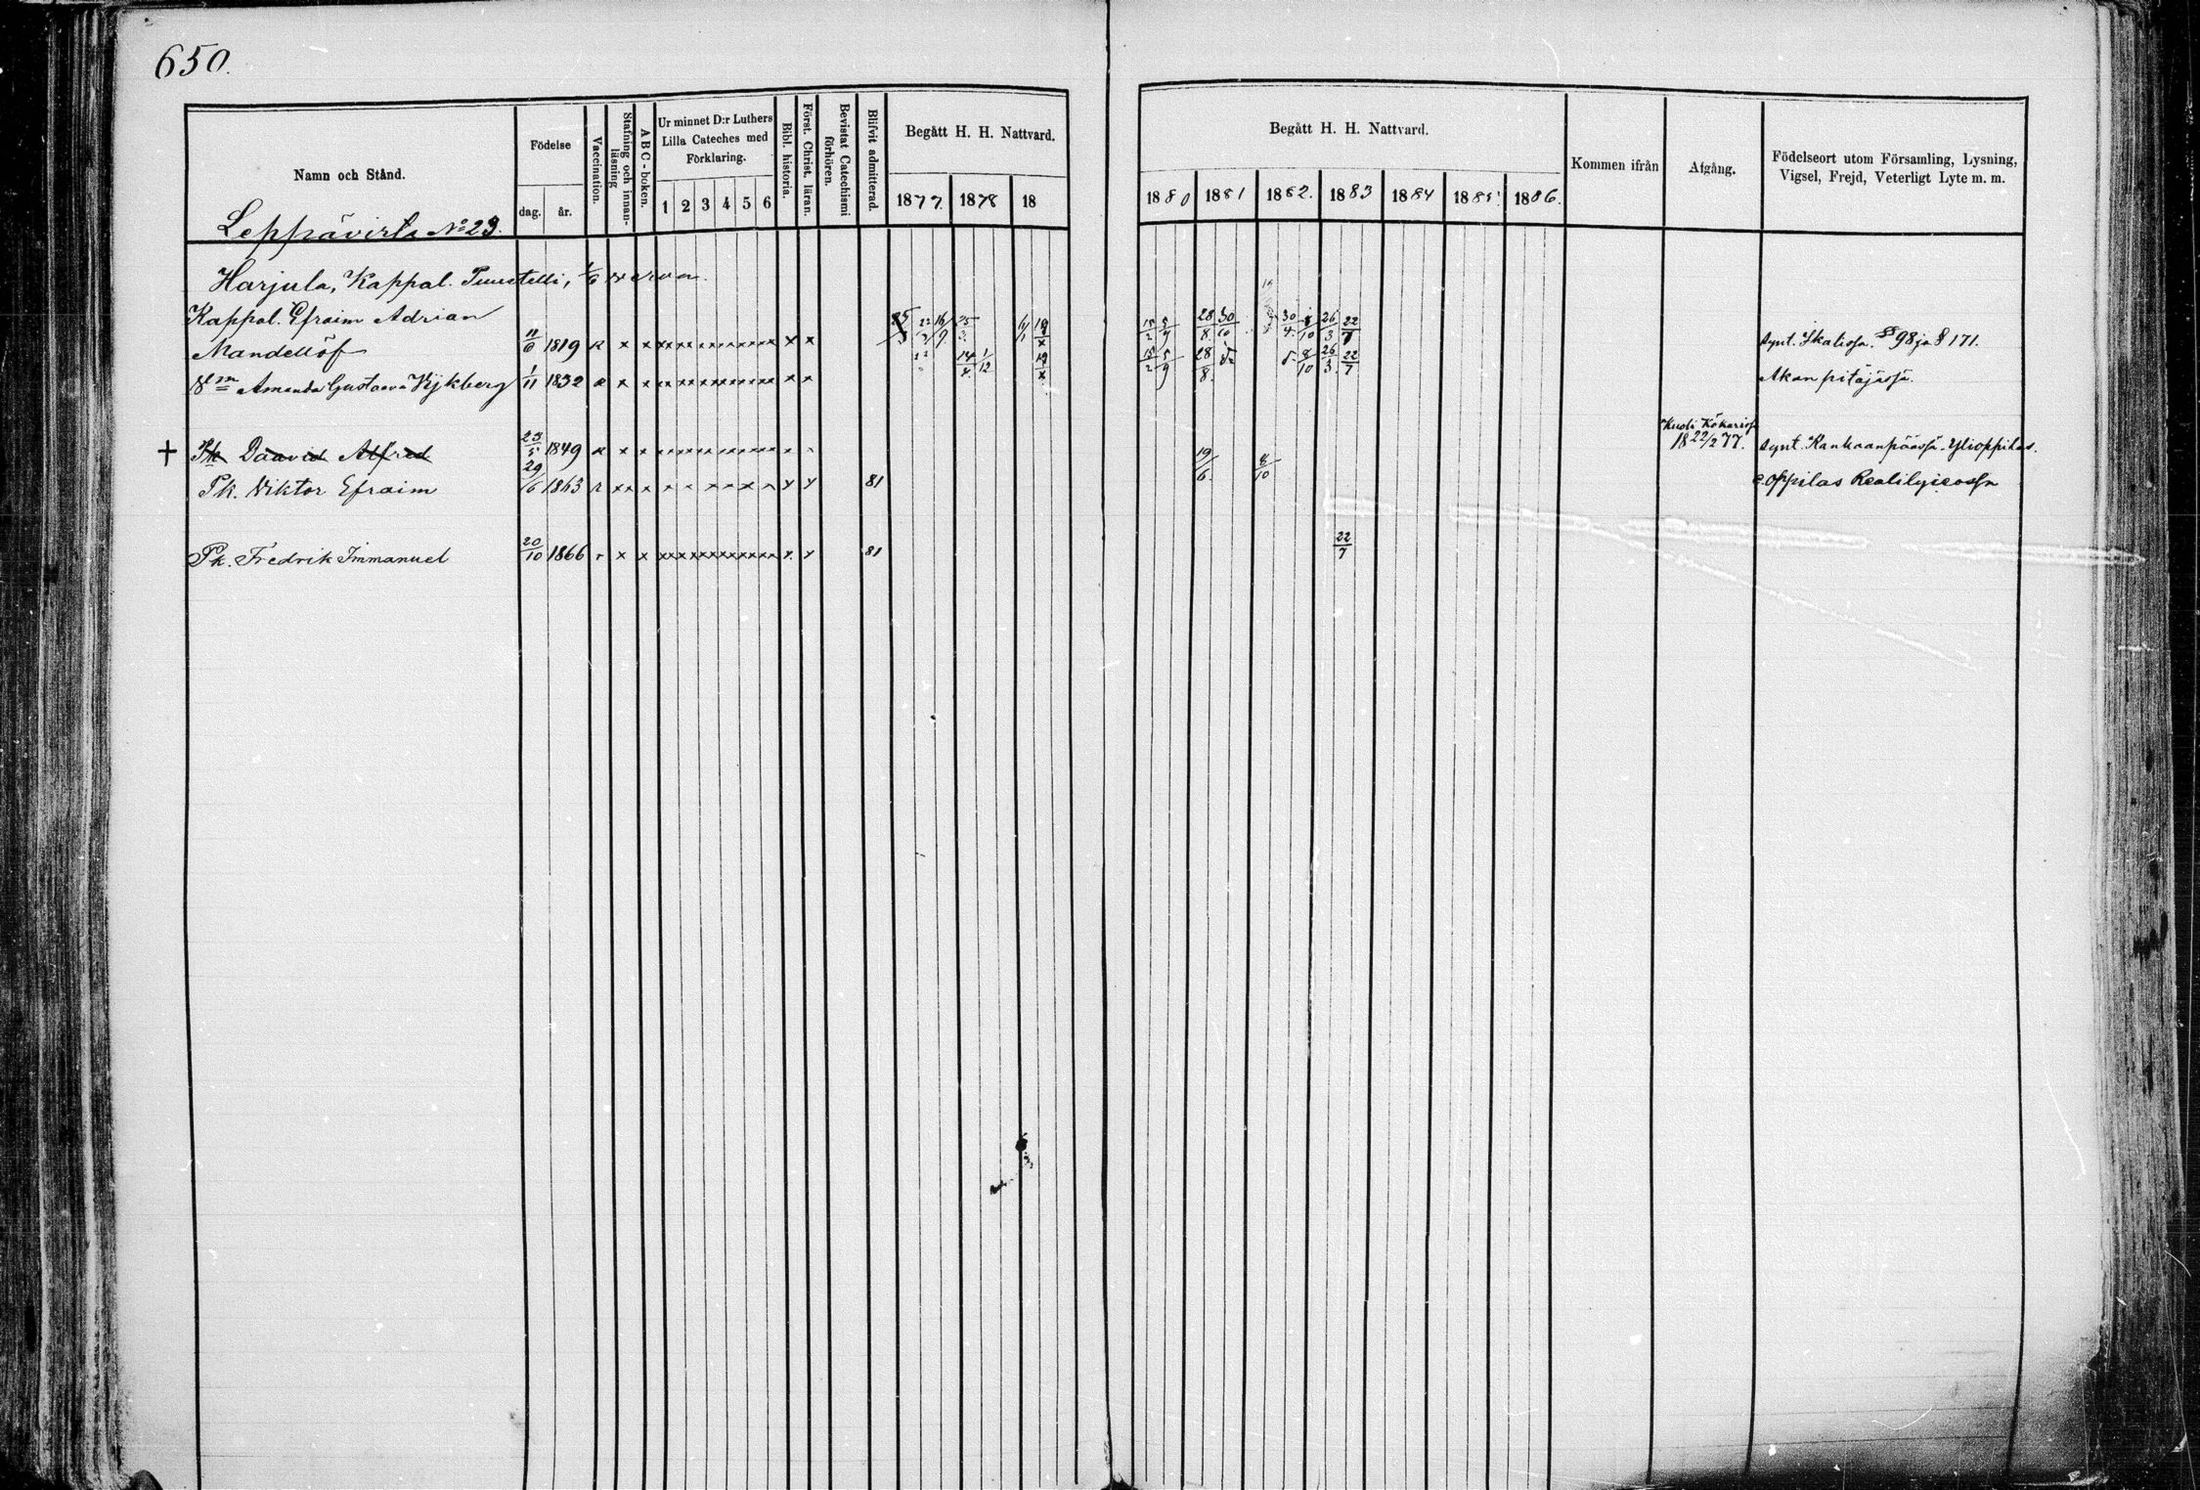 650.
Namn och Stånd.
Födelse
dag.
år.
Vaccination.
Stafning och innan-
läsning
ABC-boken.
Ur minnet D:r Luthers
Lilla Cateches med
Förklaring.
1 2 3 4 5 6
Bibl. historia.
Först. Christ. läran.
Bevistat Catechismi
förhören.
Blifvit admitterad.
Begått H. H. Nattvard.
1877. 1878 18
Begått H. H. Nattvard.
1880 1881 1882. 1883 1884 1885 1886.
Kommen ifrån
Afgång.
Födelseort utom Församling, Lysning,
Vigsel, Frejd, Veterligt Lyte m. m.
Leppävirta No 23.
Harjula, Kappal.
Kappal. Efraim Adrian
Mandellöf 11/6 1819 x x x x x 6/1 19/x 15/2 5/9 28/8 30/10 30/4 8/10 26/3 22/7 synt. Ikalissa. §§ 98 ja § 171.
Amanda Gustaava Nykberg 1/11 1832 x x x x 14/4 1/12 19/x 15/2 5/9 28/8. 8/10 26/3 22/7 Akan pitäjässä.
Kuoli
1822/2 77.
† Pk Daavid Alfred 23/5 1849 x x x synt. Kankaanpäässä. Ylioppilas.
Pk. Viktor Efraim 29/6 1863 81 19/6. 8/10 Oppilas Realilyseossa
Pk. Fredrik Immanuel 20/10 1866 x x x 81 22/7